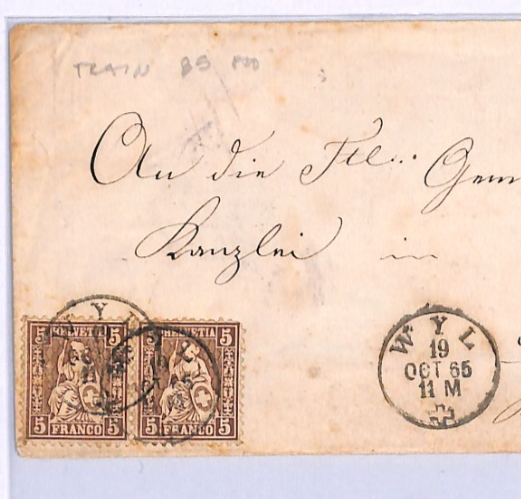 TRAIN 85
An die Ftl. Gem
Kanzlei in
5 HELVETIA 5
5 FRANCO 5
5 HELVETIA 5
5 FRANCO 5
WYL
19
OCT 65
11 M